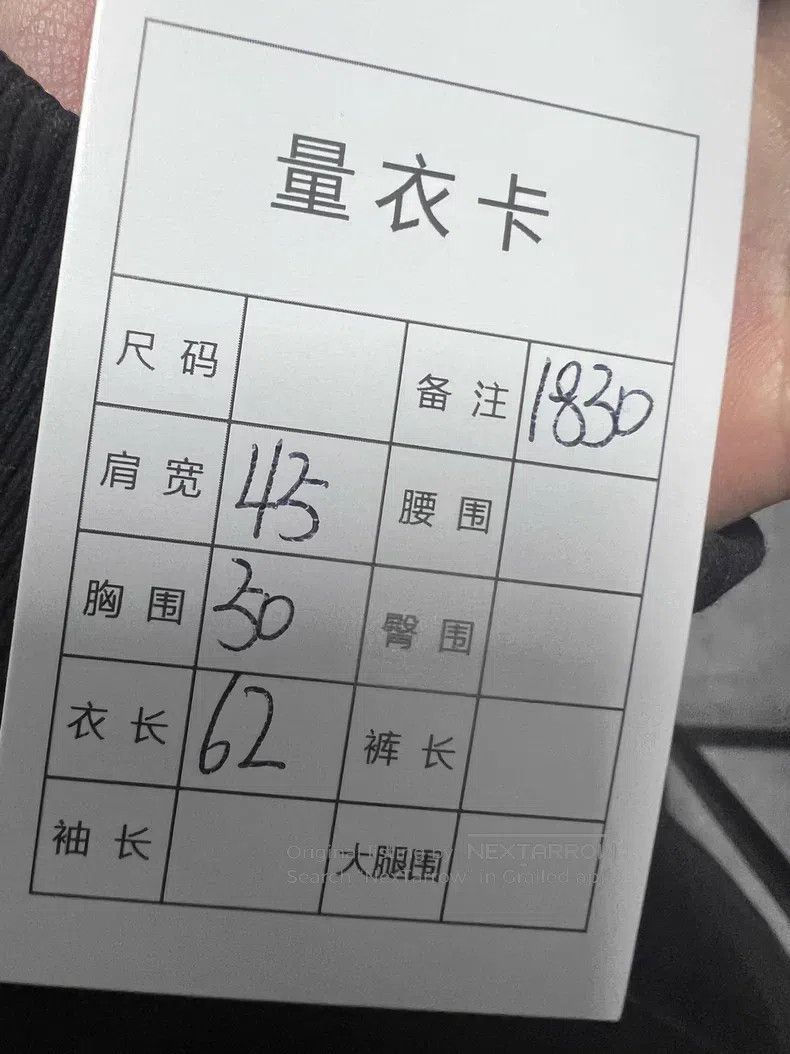 量衣卡
尺码 备注 1830
肩宽 45 腰围
胸围 50 臀围
衣长 62 裤长
袖长 大腿围
Original listing by NEXTARROW
Search "Nextarrow" in Grailed app